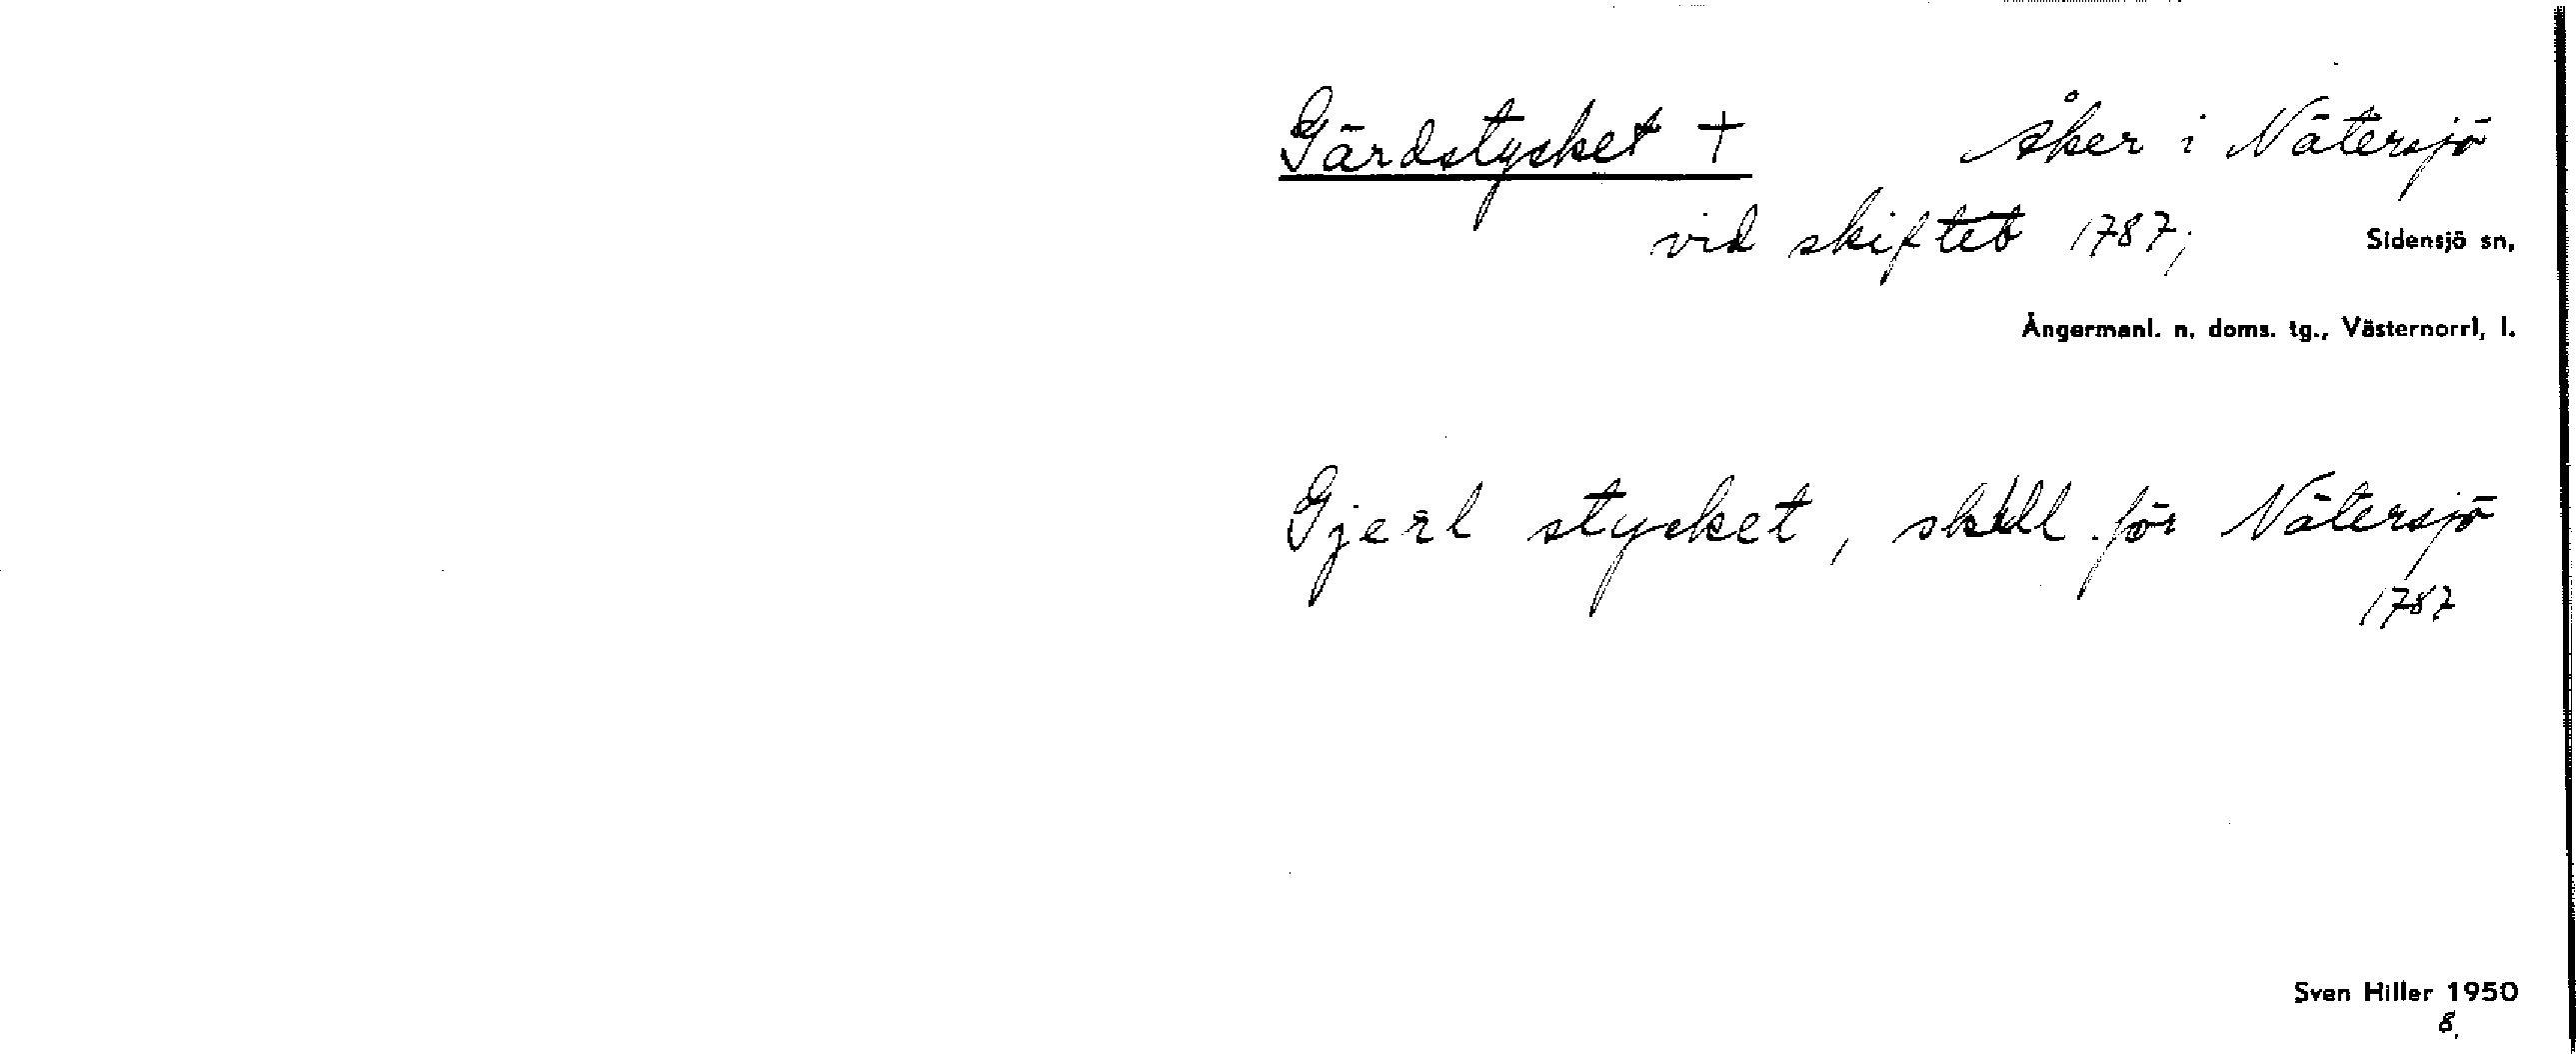 Gärdstycket + åker i Nätersjö
vid skiftet 1787; Sidensjö sn,
Ångermanl. n. doms. tg., Västernorrl, l.
Gjerl stycket, skill. för Nätersjö
1787
Sven Hiller 1950
8.